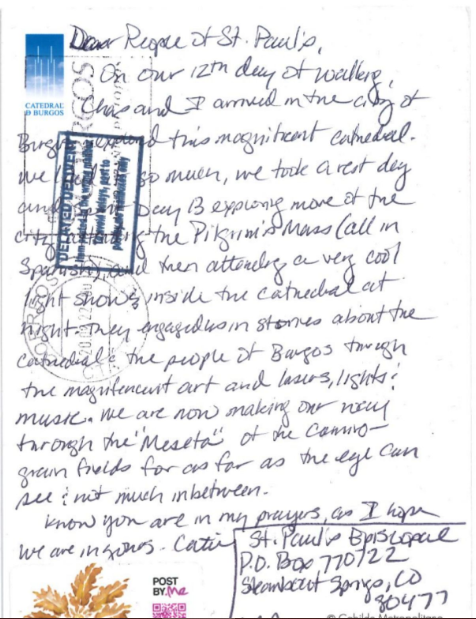 Dear People of St. Paul's,
On our 12th day of walking,
Chas and I arrived in the city of
CATEDRAL
D BURGOS
Burgos explored this magnificent cathedral.
We so much, we took a rest day
and Day 13 exploring more of the
city, the Pilgrim's Mass (all in
Spanish), and then attending a very cool
light show inside the cathedral at
night. They engaged us in stories about the
cathedral & the people of Burgos through
the magnificent art and lasers, lights &
music. We are now making our way
through the "Meseta" of the Camino-
grain fields for as far as the eye can
see & not much inbetween.
Know you are in my prayers, as I hope
we are in yours.
St. Paul's Episcopal
P.O. Box 770722
Steamboat Springs, CO
80477
DELAYED DELIVERY
POST
BY.me
© Cabildo Metropolitano